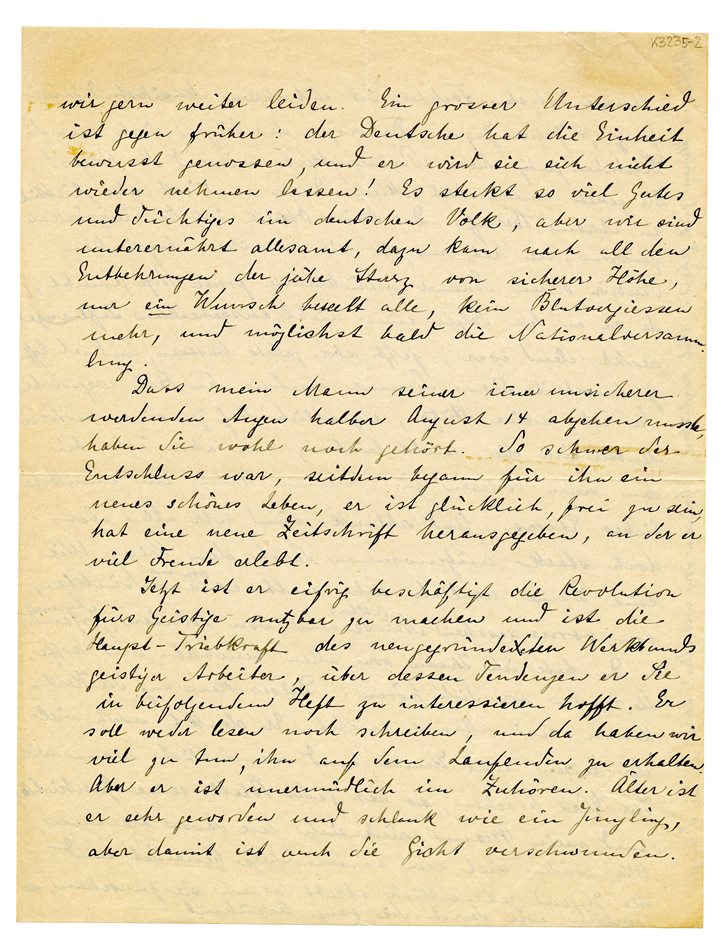 K3235-2
wir gern weiter leiden. Ein grosser Unterschied
ist gegen früher: der Deutsche hat die Einheit
bewusst genossen, und er wird sie sich nicht
wieder nehmen lassen! Es steckt so viel Gutes
und Tüchtiges im deutschen Volk, aber wir sind
unterernährt allesamt, dazu kam nach all den
Entbehrungen der jähe Sturz von sicherer Höhe,
nur ein Wunsch beseelt alle, kein Blutvergiessen
mehr, und möglichst bald die Nationalversamm-
lung.
Dass mein Mann seiner immer unsicherer
werdenden Augen halber August 14 abgehen musste,
haben Sie wohl noch gehört. So schwer der
Entschluss war, seitdem begann für ihn ein
neues schönes Leben, er ist glücklich, frei zu sein,
hat eine neue Zeitschrift herausgegeben, an der er
viel Freude erlebt.
Jetzt ist er eifrig beschäftigt die Revolution
fürs Geistige nutzbar zu machen und ist die
Haupt-Triebkraft des neugegründeten Werkbunds
geistiger Arbeiter, über dessen Tendenzen er Sie
in beifolgendem Heft zu interessieren hofft. Er
soll weder lesen noch schreiben, und da haben wir
viel zu tun, ihn auf dem Laufenden zu erhalten.
Aber er ist unermüdlich im Zuhören. Älter ist
er sehr geworden und schlank wie ein Jüngling,
aber damit ist auch die Gicht verschwunden.